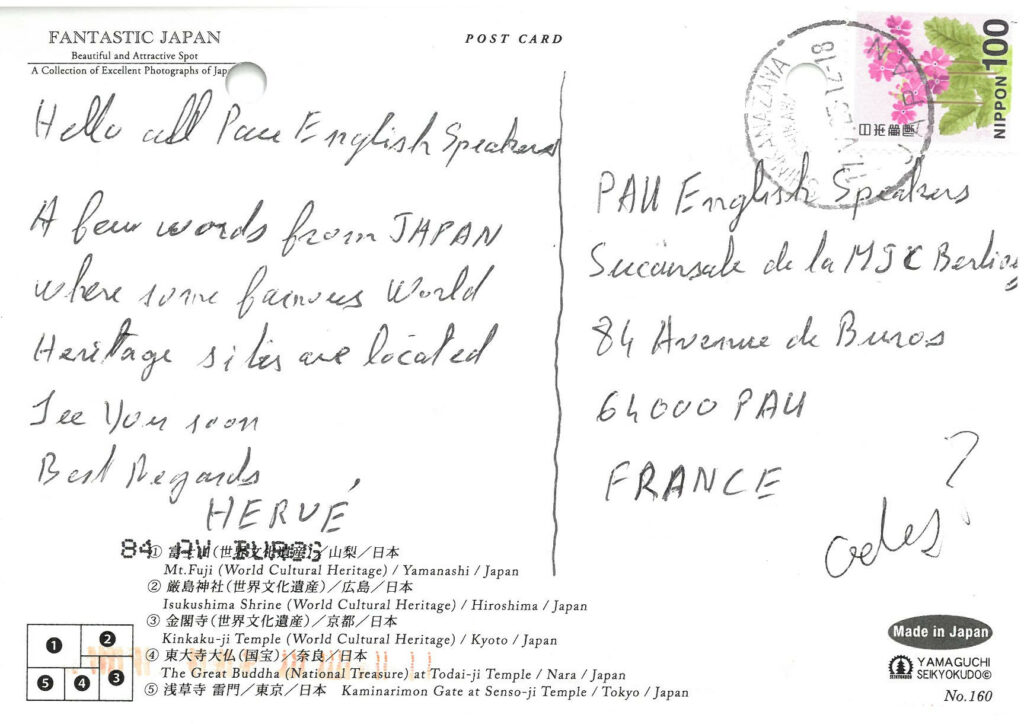 FANTASTIC JAPAN
Beautiful and Attractive Spot
A Collection of Excellent Photographs of Jap
POST CARD
NIPPON 100
日本郵便
JAPAN
Hello all Pau English Speakers
A few words from JAPAN
where some famous World
Heritage sites are located
See You soon
Best Regards
HERVÉ
PAU English Speakers
Sucursale de la MJC Berlioz
84 Avenue de Buros
64000 PAU
FRANCE
84 AV BUROS
① 富士山(世界文化遺産)/山梨/日本
Mt.Fuji (World Cultural Heritage) / Yamanashi / Japan
② 厳島神社(世界文化遺産)/広島/日本
Isukushima Shrine (World Cultural Heritage) / Hiroshima / Japan
③ 金閣寺(世界文化遺産)/京都/日本
Kinkaku-ji Temple (World Cultural Heritage) / Kyoto / Japan
④ 東大寺大仏(国宝)/奈良/日本
The Great Buddha (National Treasure) at Todai-ji Temple / Nara / Japan
⑤ 浅草寺 雷門/東京/日本 Kaminarimon Gate at Senso-ji Temple / Tokyo / Japan
1 2
5 4 3
Made in Japan
YAMAGUCHI
SEIKYOKUDO©
No.160